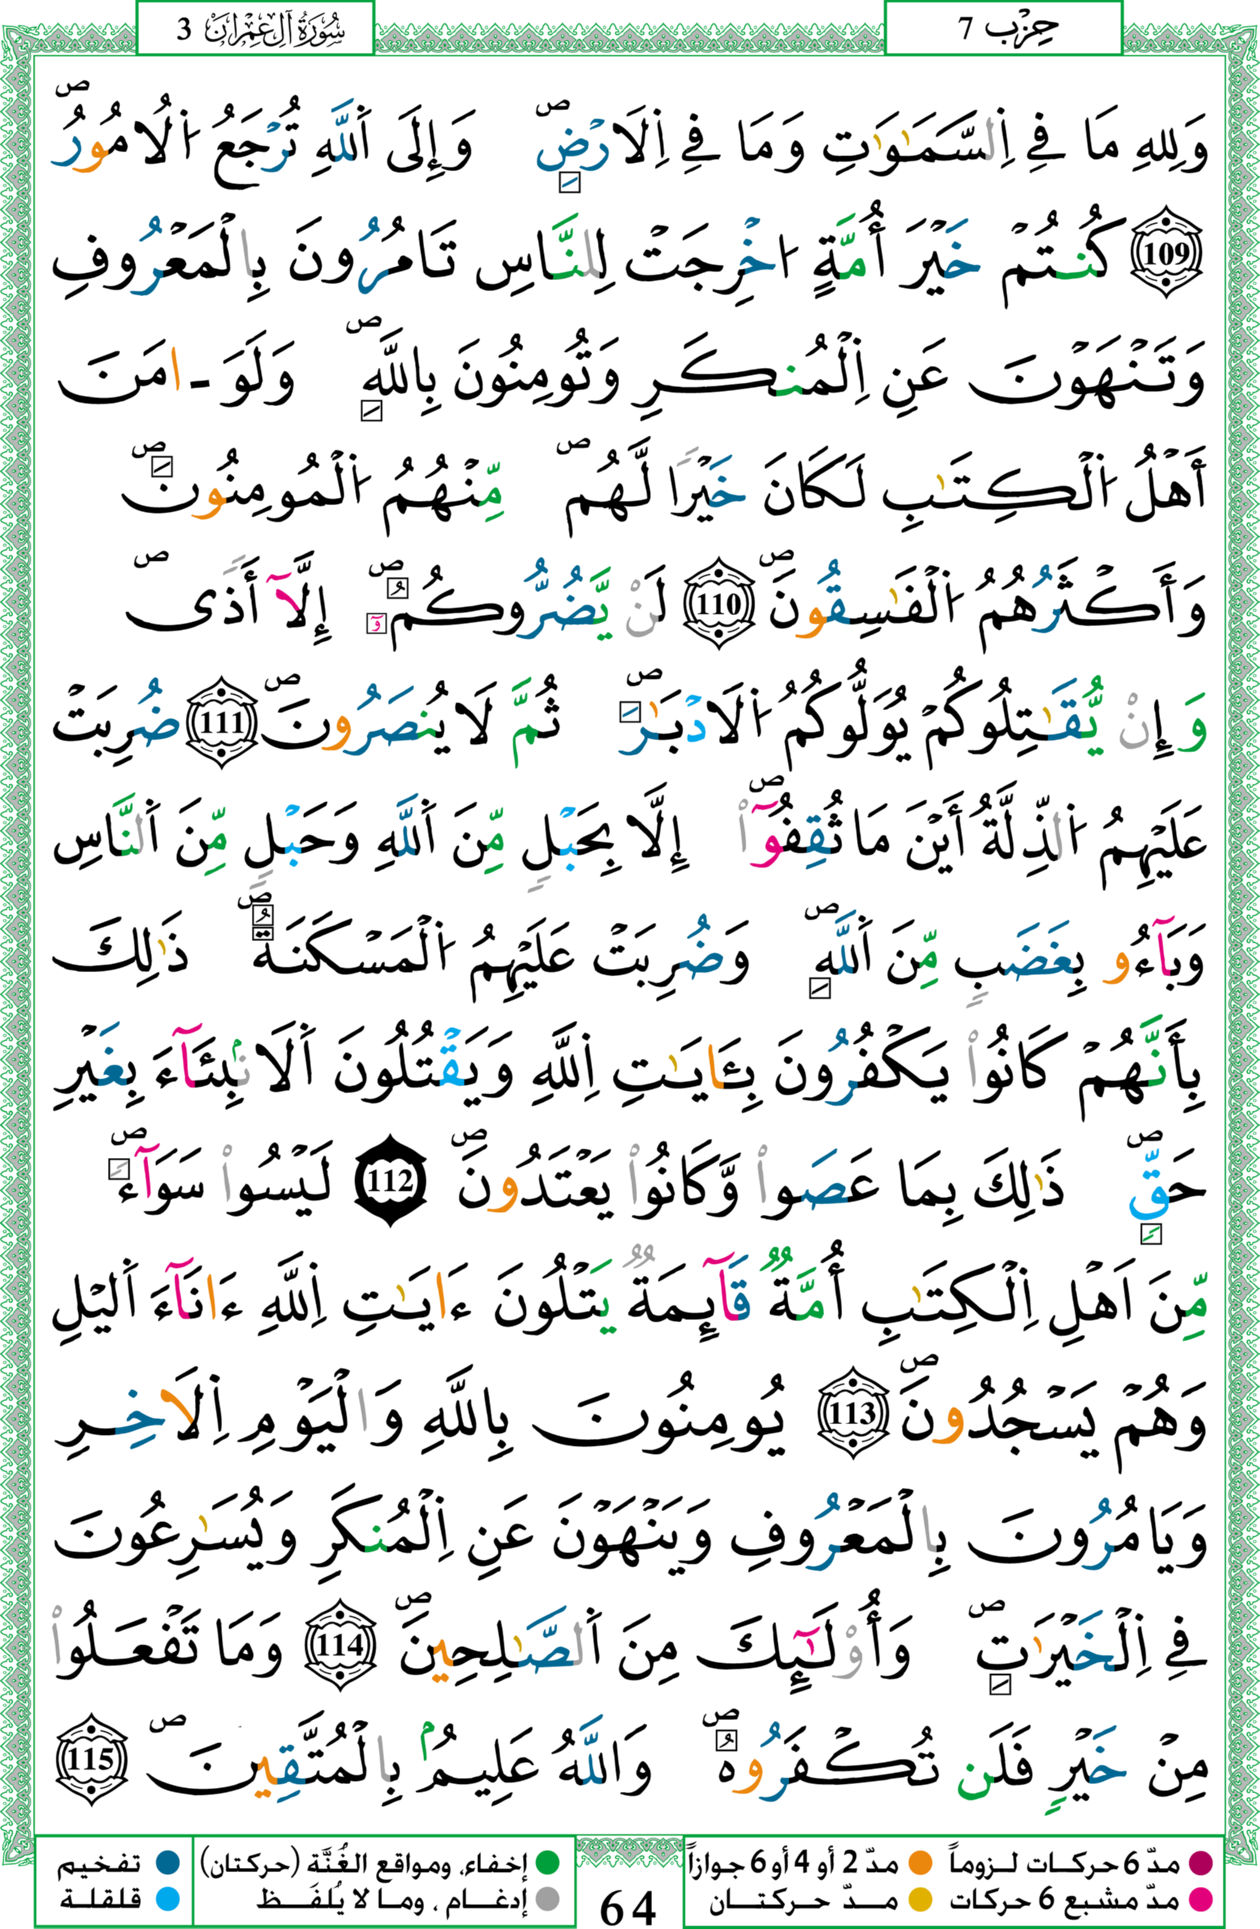 حِزْب 7
سُورَةُ آلِ عِمْرَان 3
وَلِلهِ مَا فِے اِ۬لسَّمَٰوَٰتِ وَمَا فِے اِ۬لَارْضِۖ وَإِلَى اَ۬للَّهِ تُرْجَعُ اُ۬لُامُورُۖ
109 كُنتُمْ خَيْرَ أُمَّةٍ ا۟خْرِجَتْ لِلنَّاسِ تَامُرُونَ بِالْمَعْرُوفِ
وَتَنْهَوْنَ عَنِ اِ۬لْمُنكَرِ وَتُومِنُونَ بِاللَّهِۖ وَلَوَ ـ امَنَ
أَهْلُ اُ۬لْكِتَٰبِ لَكَانَ خَيْراٗ لَّهُمۖ مِّنْهُمُ اُ۬لْمُومِنُونَۖ
وَأَكْثَرُهُمُ اُ۬لْفَٰسِقُونَۖ 110 لَنْ يَّضُرُّوكُمُۥٓۖ إِلَّآ أَذىٗۖ
وَإِنْ يُّقَٰتِلُوكُمْ يُوَلُّوكُمُ اُ۬لَادْبَٰرَۖ ثُمَّ لَا يُنصَرُونَۖ 111 ضُرِبَتْ
عَلَيْهِمُ اُ۬لذِّلَّةُ أَيْنَ مَا ثُقِفُوٓاْۖ إِلَّا بِحَبْلٖ مِّنَ اَ۬للَّهِ وَحَبْلٖ مِّنَ اَ۬لنَّاسِ
وَبَآءُو بِغَضَبٖ مِّنَ اَ۬للَّهِۖ وَضُرِبَتْ عَلَيْهِمُ اُ۬لْمَسْكَنَةُۖ ذَٰلِكَ
بِأَنَّهُمْ كَانُواْ يَكْفُرُونَ بِـَٔايَٰتِ اِ۬للَّهِ وَيَقْتُلُونَ اَ۬لَانۢبِئَآءَ بِغَيْرِ
حَقّٖۖ ذَٰلِكَ بِمَا عَصَواْ وَّكَانُواْ يَعْتَدُونَۖ 112 لَيْسُواْ سَوَآءٗۖ
مِّنَ اَهْلِ اِ۬لْكِتَٰبِ أُمَّةٞ قَآئِمَةٞ يَتْلُونَ ءَايَٰتِ اِ۬للَّهِ ءَانَآءَ اَ۬ليْلِ
وَهُمْ يَسْجُدُونَۖ 113 يُومِنُونَ بِاللَّهِ وَالْيَوْمِ اِ۬لَاخِرِ
وَيَامُرُونَ بِالْمَعْرُوفِ وَيَنْهَوْنَ عَنِ اِ۬لْمُنكَرِ وَيُسَٰرِعُونَ
فِے اِ۬لْخَيْرَٰتِۖ وَأُوْلَٰٓئِكَ مِنَ اَ۬لصَّٰلِحِينَۖ 114 وَمَا تَفْعَلُواْ
مِنْ خَيْرٖ فَلَن تُكْفَرُوهُۖ وَاللَّهُ عَلِيمُۢ بِالْمُتَّقِينَۖ 115
مدّ 6 حركات لـزوماً مدّ 2 أو 4 أو 6 جوازاً إخفاء، ومواقع الغُنَّة (حركتان) تفخيم
مدّ مشبع 6 حركات مدّ حركتان إدغام ، وما لا يُلفَظ قلقلة
64